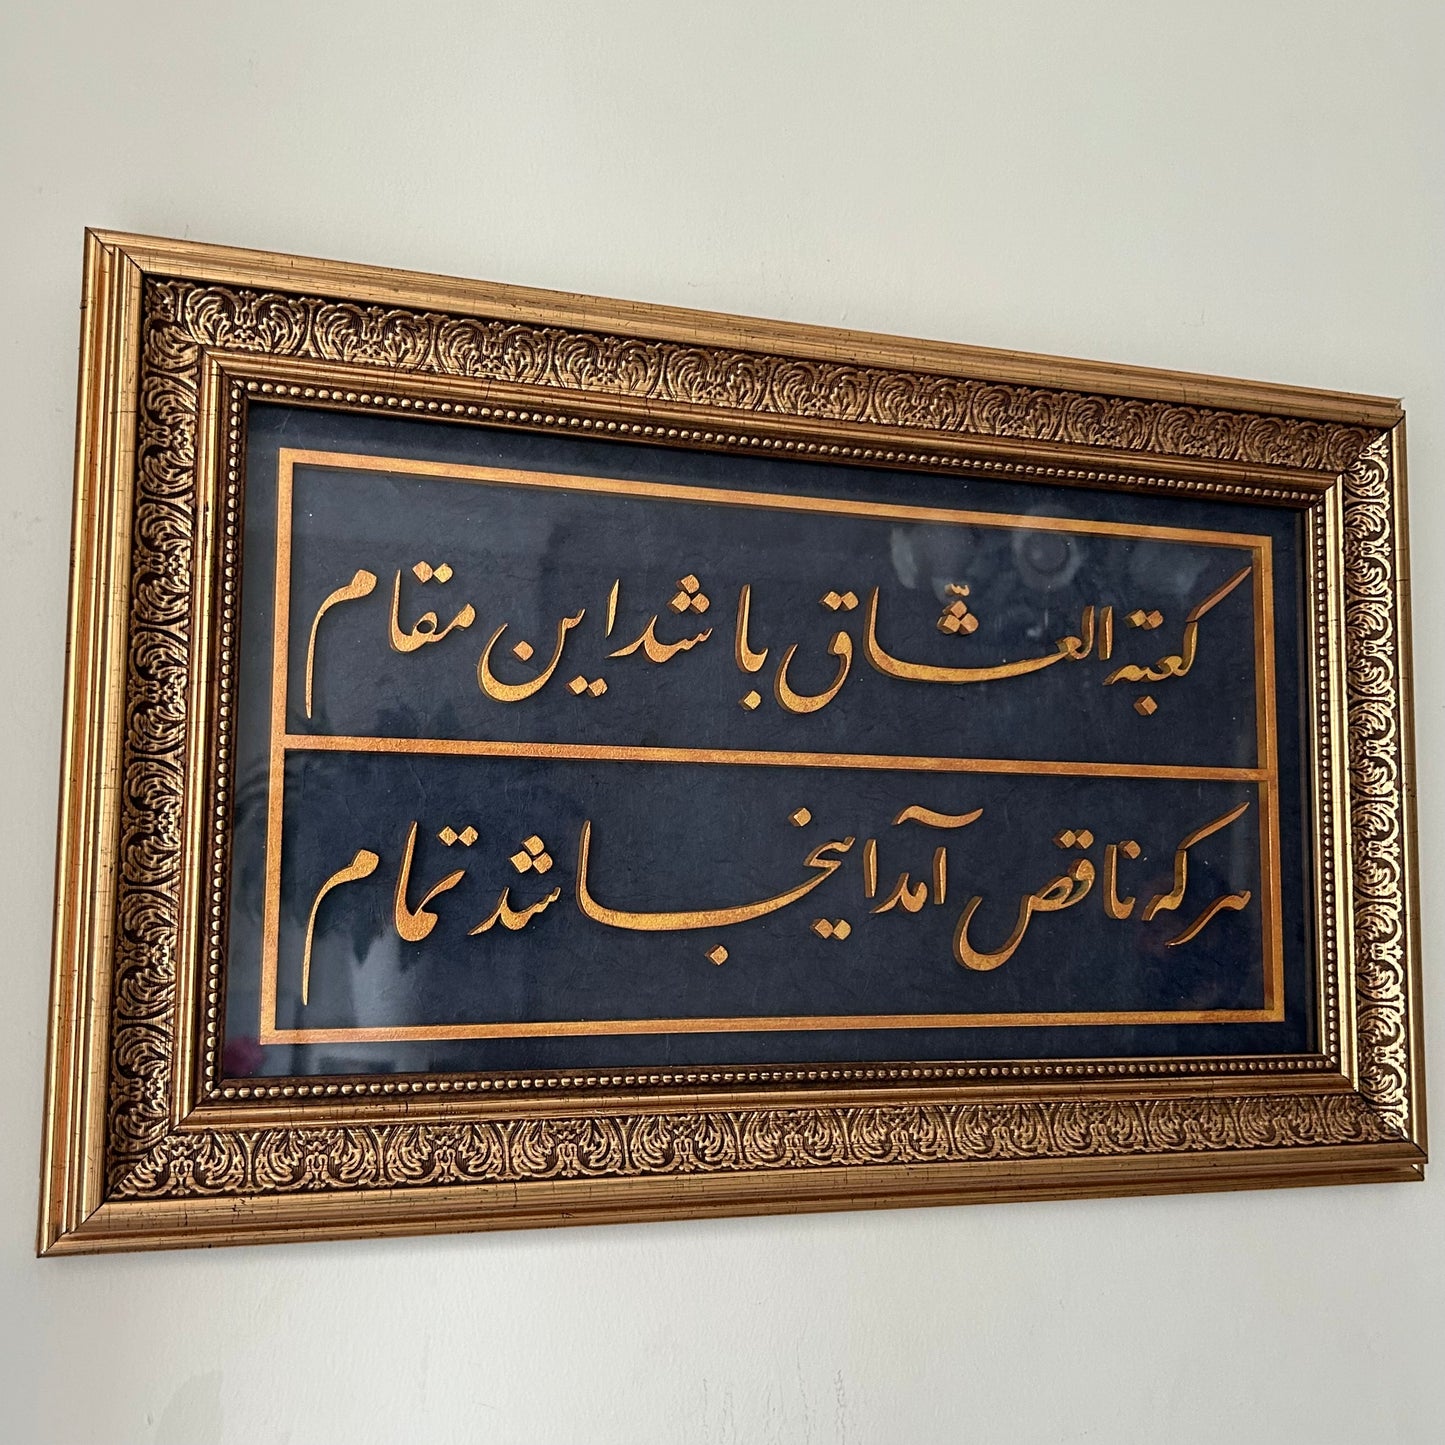 كعبة العشّاق باشد اين مقام
هر كه ناقص آمد اينجا شد تمام